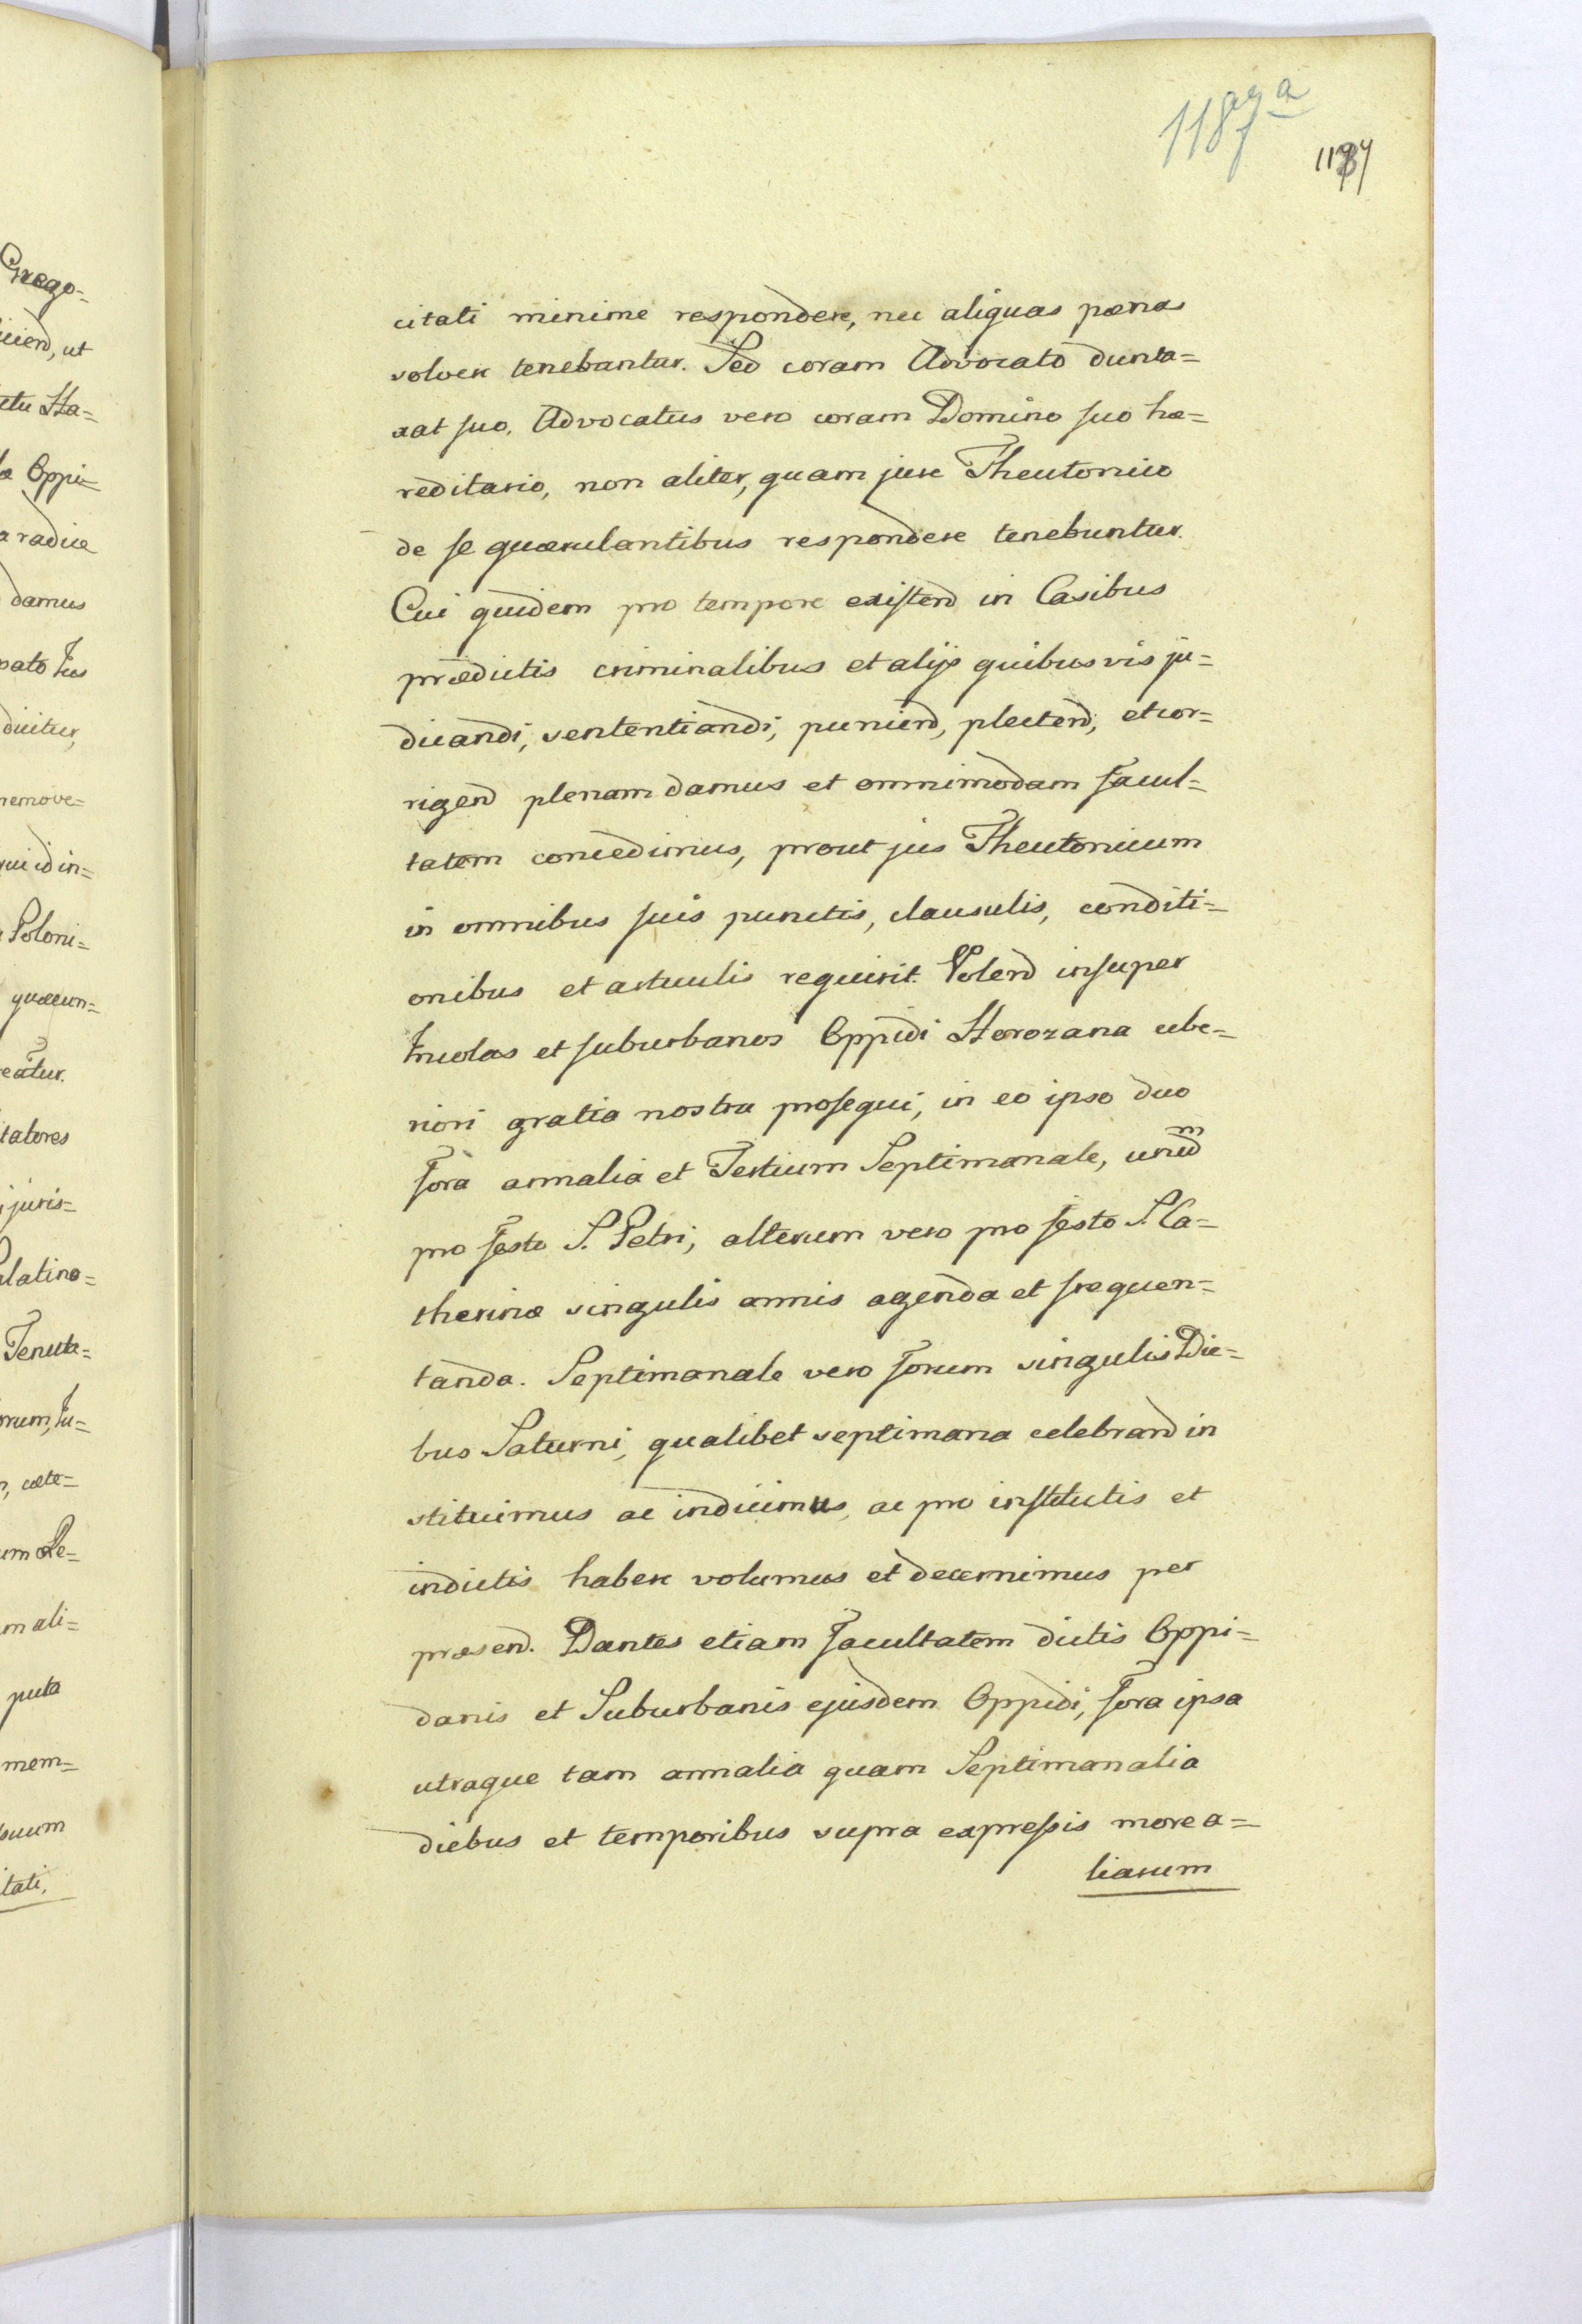 1187a
1187
citati minime respondere, nec aliquas pœnas
solvere tenebantur. Sed coram Advocato dunta=
xat suo, Advocatus vero coram Domino suo hæ=
reditario, non aliter, quam jure Theutonico
de se quærulantibus respondere tenebuntur.
Cui quidem pro tempore existend in Casibus
prædictis criminalibus et alijs quibusvis ju=
dicandi, sententiandi, puniend, plectend, et cor=
rigend plenam damus et omnimodam facul=
tatem concedimus, prout jus Theutonicum
in omnibus suis punctis, clausulis, conditi=
onibus et articulis requirit. Volend insuper
Incolas et suburbanos Oppidi Horozana ube=
riori gratia nostra prosequi, in eo ipso duo
fora annalia et Tertium Septimanale, unum
pro festo S. Petri, alterum vero pro festo S. Ca=
therinæ singulis annis agenda et frequen=
tanda. Septimanale vero forum singulis Die=
bus Saturni, qualibet septimana celebrand in
stituimus ac indicimus, ac pro institutis et
indictis habere volumus et decernimus per
præsend. Dantes etiam facultatem dictis Oppi=
danis et Suburbanis ejusdem Oppidi, fora ipsa
utraque tam annalia quam Septimanalia
diebus et temporibus supra expressis more a=
liarum
Grego=
iciend, ut
Ha=
Oppi=
radice
damus
pato Jus
dicitur,
remove=
qui id in=
Poloni=
quæcun=
eatur.
tatores
juris=
latino=
Tenuta=
orum, Ju=
cæte=
m ali=
puta
mem=
suum
itati,